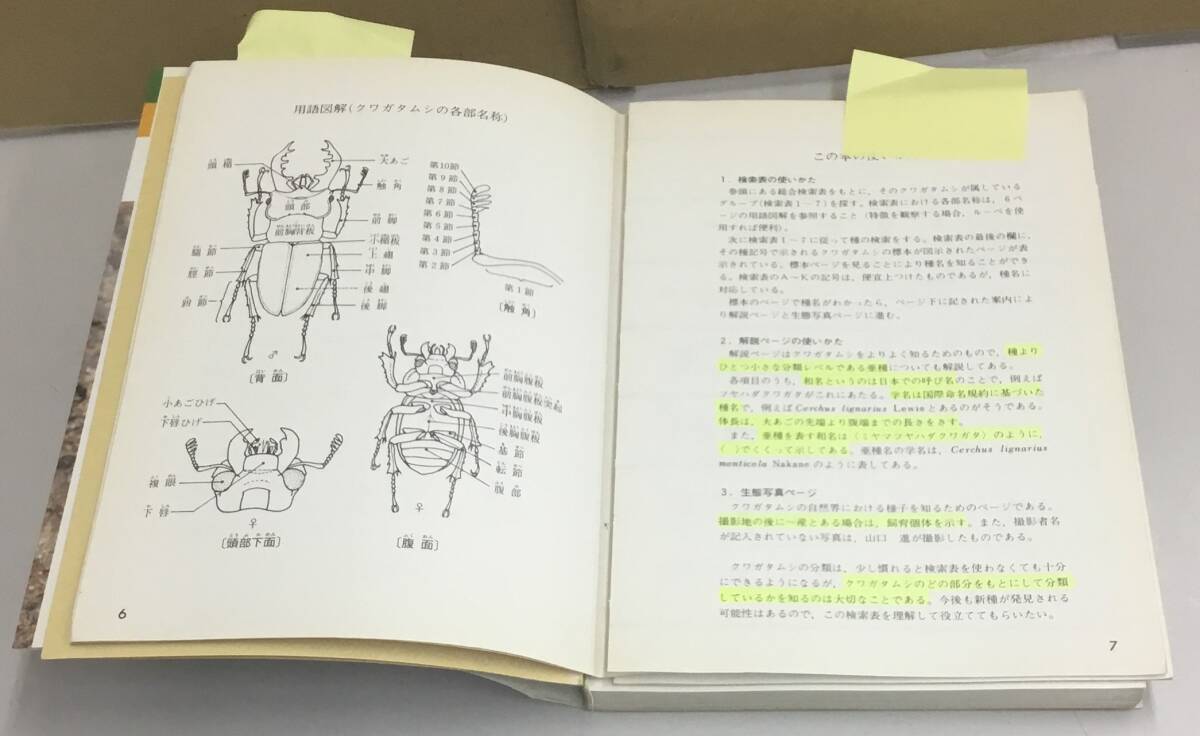 用語図解(クワガタムシの各部名称)
頭楯
大あご
触角
頭部
前脚
前胸背板
小楯板
上翅
腿節
中脚
脛節
後翅
跗節
後脚
♂
〔背面〕
第10節
第9節
第8節
第7節
第6節
第5節
第4節
第3節
第2節
第1節
〔触角〕
小あごひげ
下唇ひげ
複眼
下唇
♀
〔頭部下面〕
前胸腹板
前胸腹板突起
中胸腹板
後胸腹板
基節
転節
腹部
♀
〔腹面〕
6
この本の使い
1．検索表の使いかた
巻頭にある総合検索表をもとに，そのクワガタムシが属している
グループ(検索表1〜7)を探す。検索表における各部名称は，6ペ
ージの用語図解を参照すること(特徴を観察する場合，ルーペを使
用すれば便利)。
次に検索表1〜7に従って種の検索をする。検索表の最後の欄に，
その種記号で示されるクワガタムシの標本が図示されたページが表
示されている。標本ページを見ることにより種名を知ることができ
る。検索表のA〜Kの記号は，便宜上つけたものであるが，種名に
対応している。
標本のページで種名がわかったら，ページ下に記された案内によ
り解説ページと生態写真ページに進む。
2．解説ページの使いかた
解説ページはクワガタムシをよりよく知るためのもので，種より
ひとつ小さな分類レベルである亜種についても解説してある。
各項目のうち，和名というのは日本での呼び名のことで，例えば
ツヤハダクワガタがこれにあたる。学名は国際命名規約に基づいた
種名で，例えばCerchus lignarius Lewisとあるのがそうである。
体長は，大あごの先端より腹端までの長さをさす。
また，亜種を表す和名は(ミヤマツヤハダクワガタ)のように，
( )でくくって示してある。亜種名の学名は，Cerchus lignarius
monticola Nakaneのように表してある。
3．生態写真ページ
クワガタムシの自然界における様子を知るためのページである。
撮影地の後に〜産とある場合は，飼育個体を示す。また，撮影者名
が記入されていない写真は，山口　進が撮影したものである。
クワガタムシの分類は，少し慣れると検索表を使わなくても十分
にできるようになるが，クワガタムシのどの部分をもとにして分類
しているかを知るのは大切なことである。今後も新種が発見される
可能性はあるので，この検索表を理解して役立ててもらいたい。
7